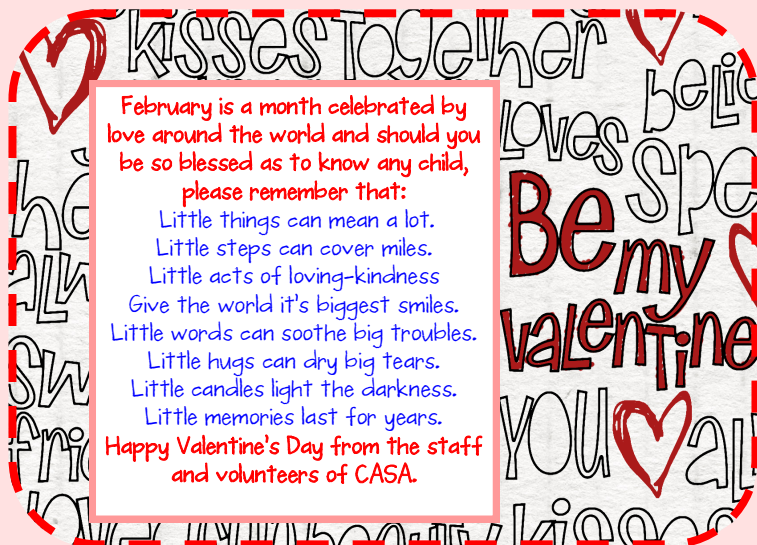 kisses Together
belie
Loves
spe
February is a month celebrated by
love around the world and should you
be so blessed as to know any child,
please remember that:
Little things can mean a lot.
Little steps can cover miles.
Little acts of loving-kindness
Give the world it's biggest smiles.
Little words can soothe big troubles.
Little hugs can dry big tears.
Little candles light the darkness.
Little memories last for years.
Happy Valentine's Day from the staff
and volunteers of CASA.
Be
my
valentine
YOU
al
sw
frie
kisses